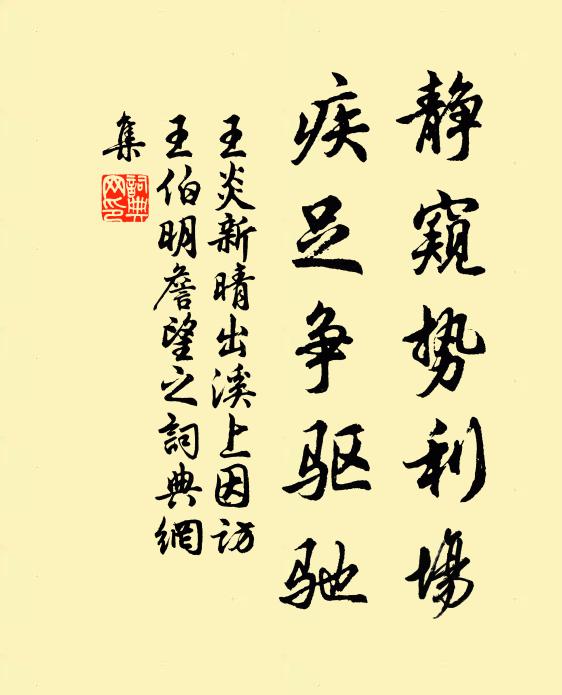 静窥势利場
疾足争驱驰
王炎新晴出溪上因访
王伯明詹望之詞典網
集
詞典
网印